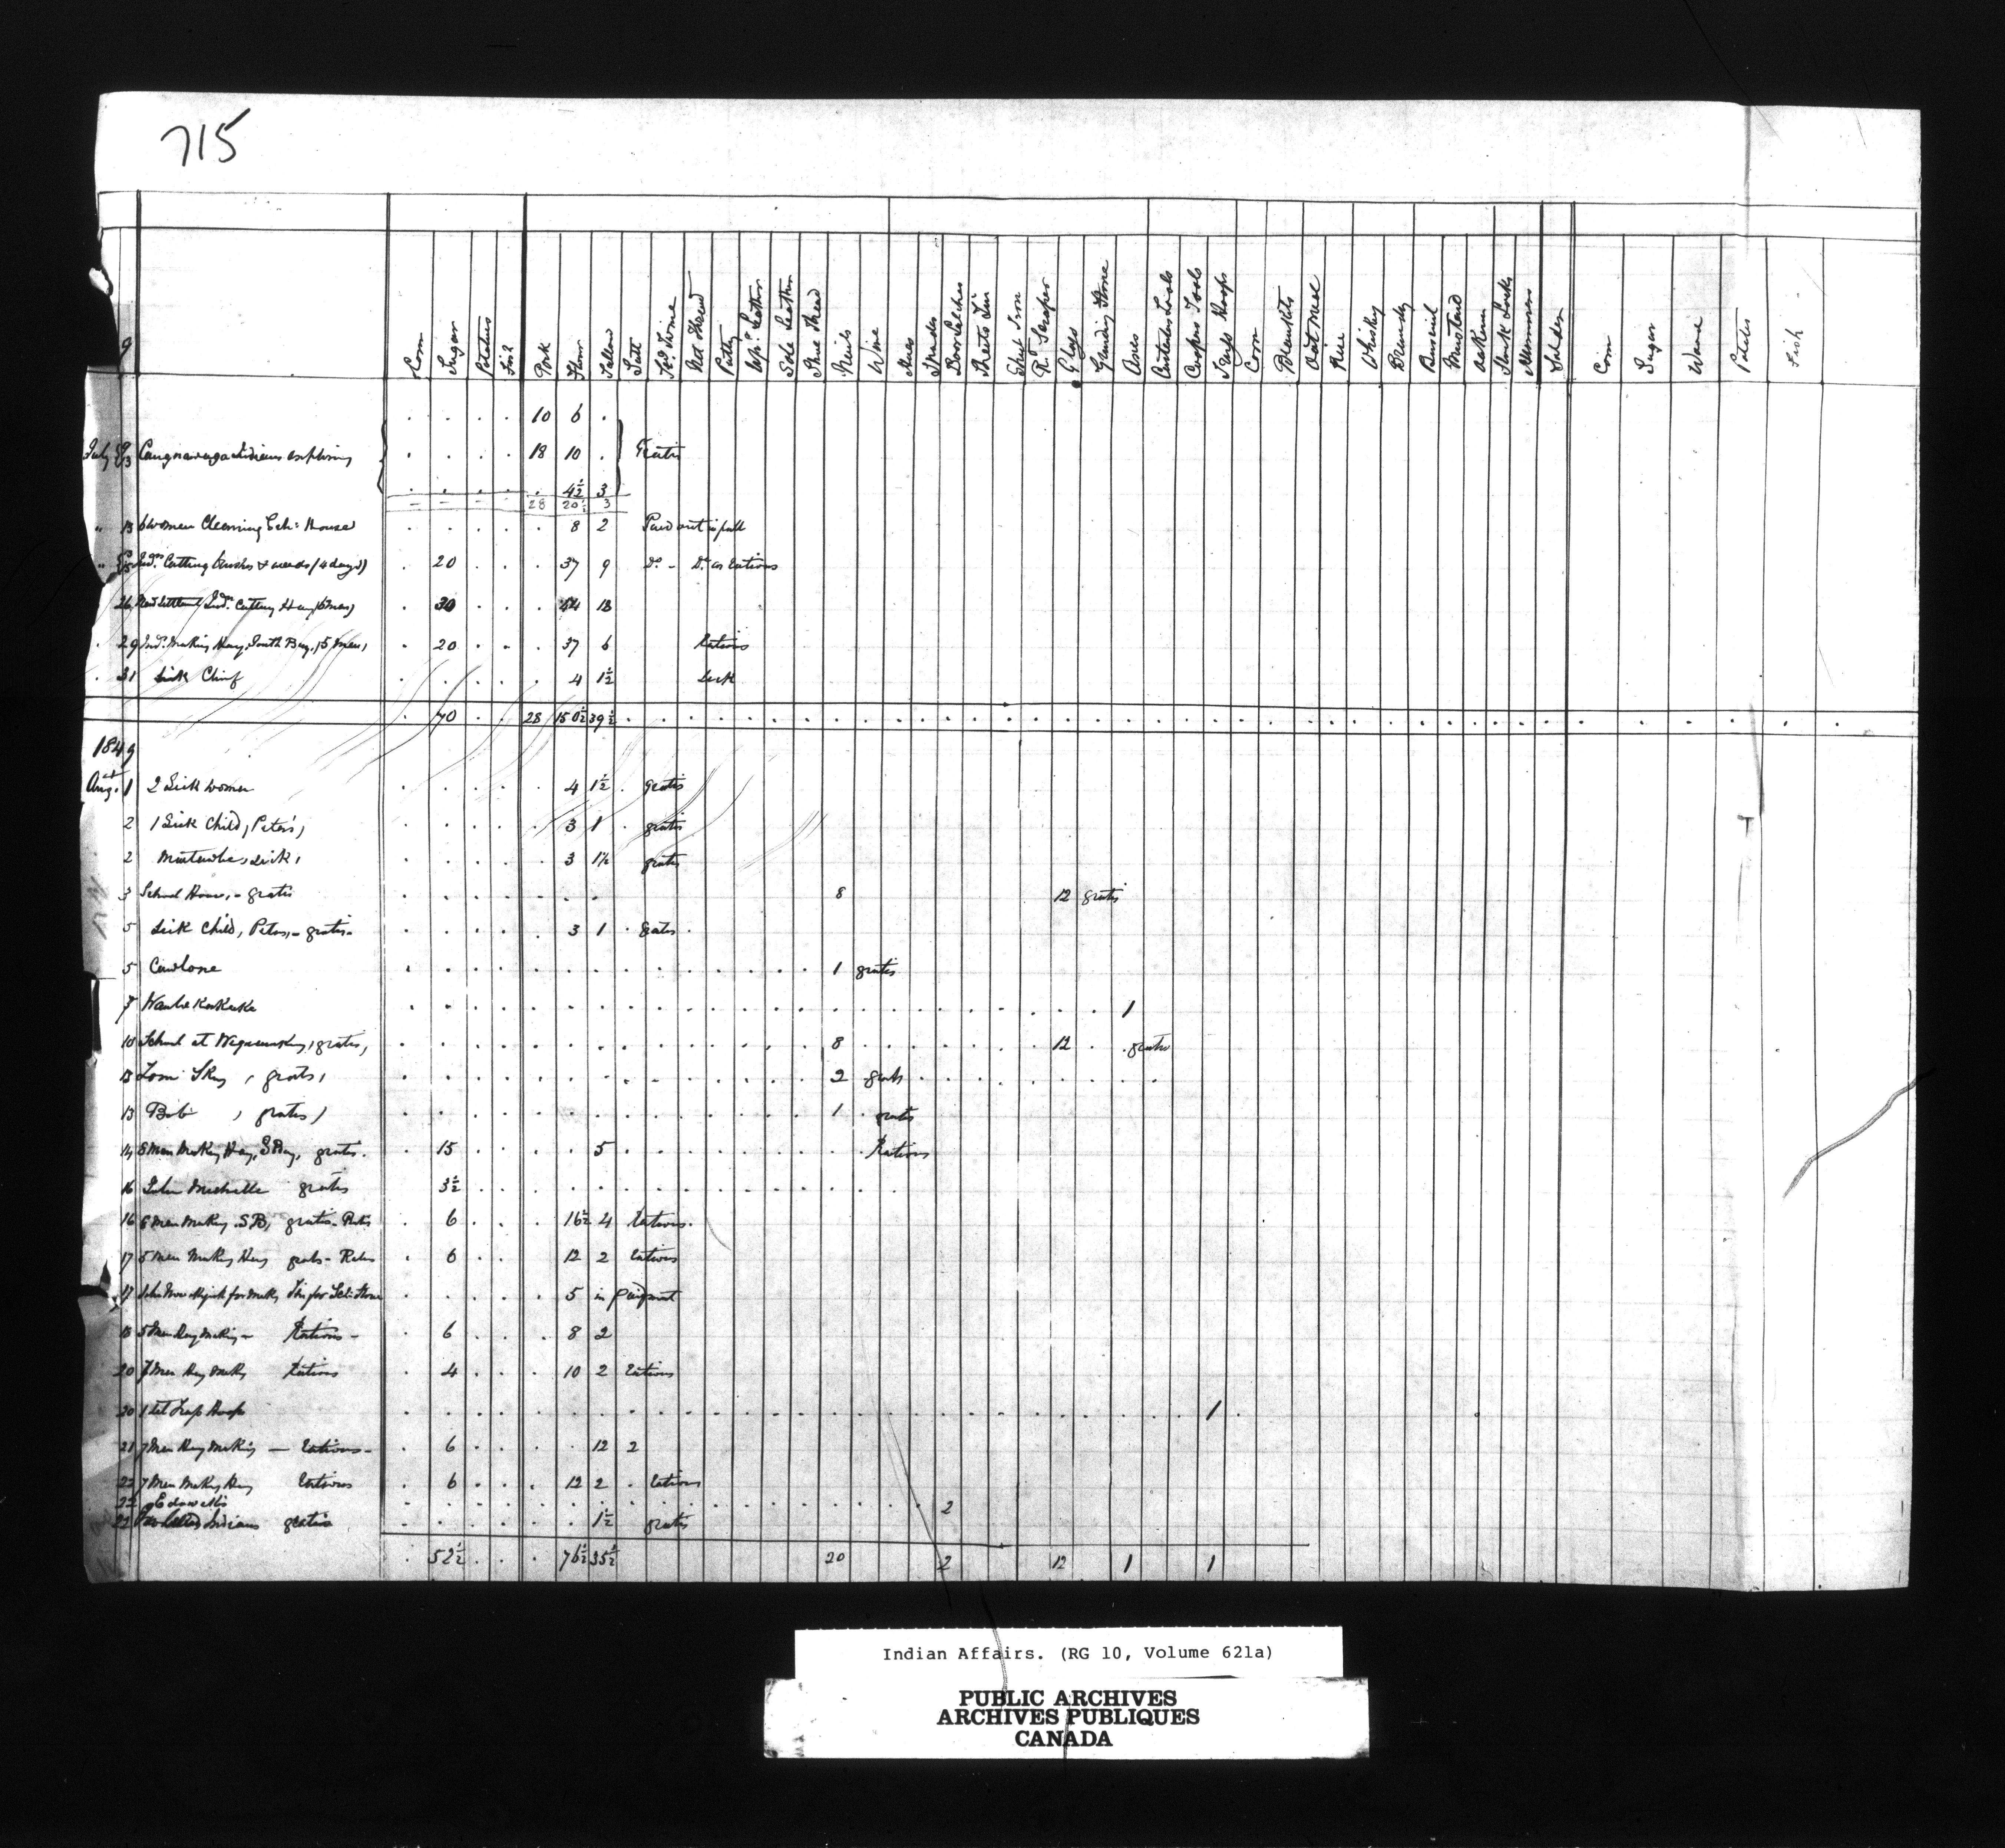 715
Corn Sugar Potatoes Fish Pork Flour Tallow Salt Net Thread Putty Sole Leather Nails Axes Spades Sheets Tin Sheet Iron Glass Grinding Stone Axes Coopers Tools Trap Hoops Corn Blankets Oat Meal Rice Whisky Brandy Mustard Oakum Stock Locks Corn Sugar Fish
10 6
July 13 Caugnawaga Indians exploring 18 10 Gratis
4½ 3
28 20½ 3
" 13 6 women Cleaning Sch: House 8 2 Paid out in full
" Inds. Cutting brushes & weeds (4 days) 20 37 9 Do. - Do. as rations
26 New Settlemt Inds. Cutting Hay 30 18
29 Inds. Making Hay, South Bay, 5 Men, 20 37 6 Rations
31 Sick Chief 4 1½ Sick
70 28 150½ 39½
1849
Augt. 1 2 Sick women 4 1½ Gratis
2 1 Sick Child, Peter's, 3 1 gratis
2 Sick, 3 1½ gratis
3 School House, - gratis 8 12 gratis
5 Sick Child, Peters, - gratis - 3 1 Gratis
5 1 gratis
7 1
10 School at gratis, 8 12 gratis
13 Tom Sky, gratis, 2 gratis
13 Bob, gratis, 1 gratis
14 Men Making Hay, S Bay, gratis. 15 5 Rations
16 gratis 3½
16 6 Men Making S B, gratis - Rats 6 16½ 4 Rations.
17 5 Men Making Hay grats - 6 12 2 rations
17 John for Sch: House 5 in payment
18 5 Men Hay Making - Rations - 6 8 2
20 7 Men Hay Making Rations 4 10 2 rations
20 1 Set Trap Hoops 1
21 7 Men Hay Making — rations - 6 12 2
22 7 Men Making Hay rations 6 12 2 rations
22 2
22 Indians gratis 1½ gratis
52½ 76½ 35½ 20 2 12 1 1
Indian Affairs. (RG 10, Volume 621a)
PUBLIC ARCHIVES
ARCHIVES PUBLIQUES
CANADA